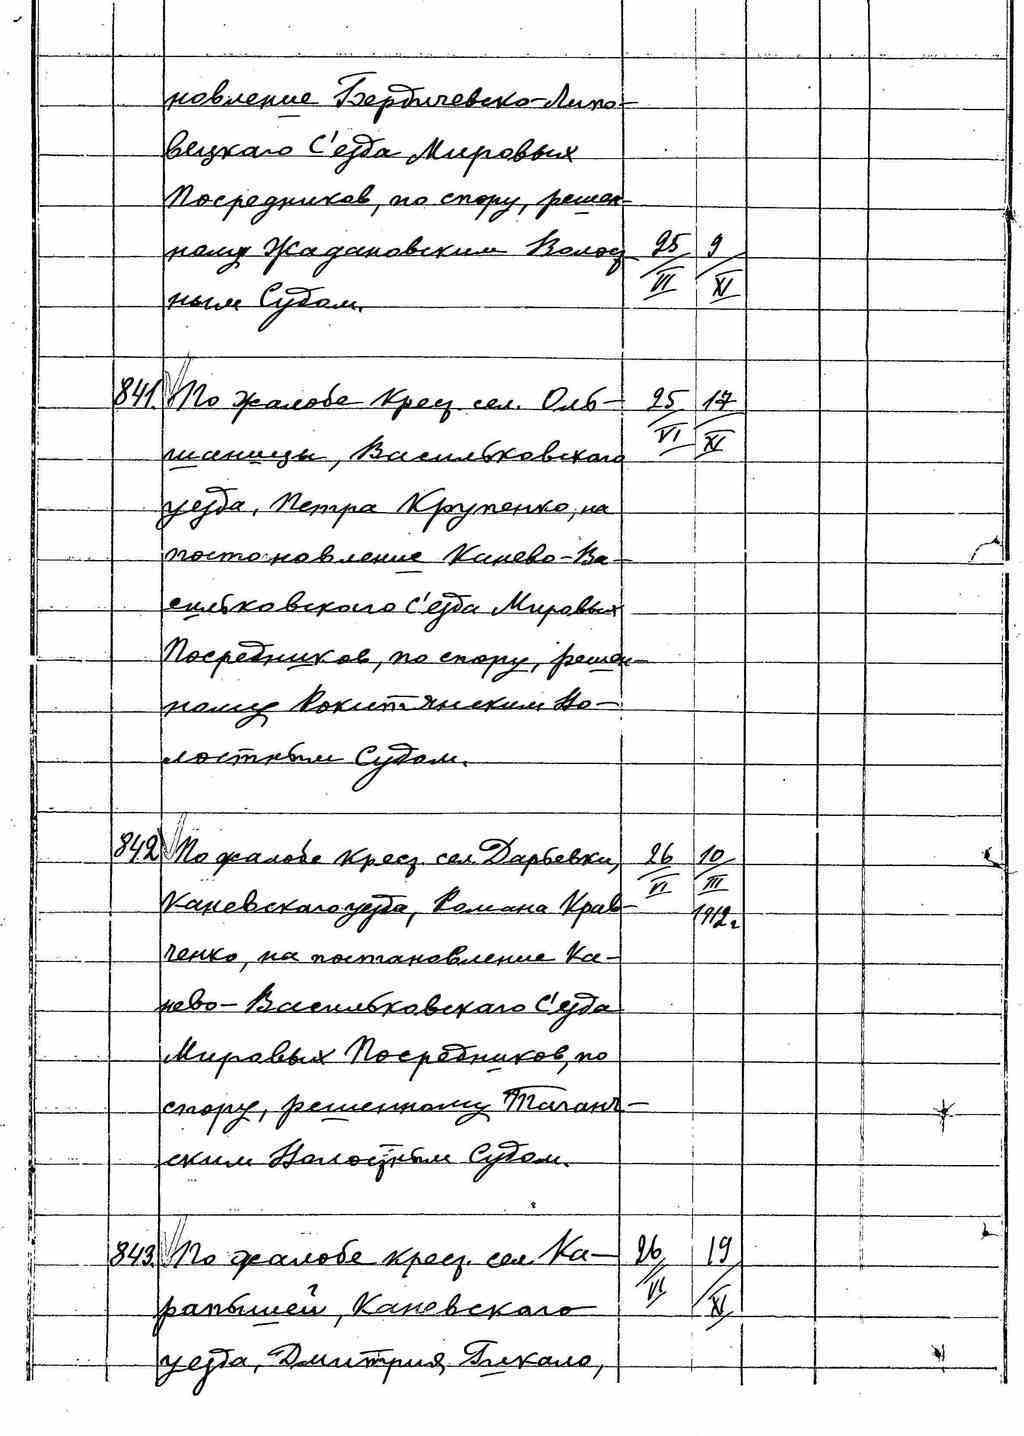 новление Бердичевско-Липо-
вецкаго С'езда Мировых
Посредников, по спору, решен-
ному Жадановским Волос 25/VI 9/XI
ным Судом.
841. По жалобе крест. сел. Оль- 25/VI 17/XI
шаницы, Васильковскаго
уезда, Петра Крупенко, на
постановление Канево-Ва-
сильковскаго с'езда Мировых
Посредников, по спору, решен-
ному Рокитянским Во-
лостным Судом.
842 По жалобе крест. сел. Дарьевки, 26/VI 10/III
Каневскаго уезда, Романа Крав- 1912г
ченко, на постановление Ка-
нево-Васильковскаго С'езда
Мировых Посредников, по
спору, решенному Таганч-
ским Волостным Судом.
843. По жалобе крест. сел. Ка- 26/VI 19/XI
рапышей, Каневскаго
уезда, Дмитрия Гикало,